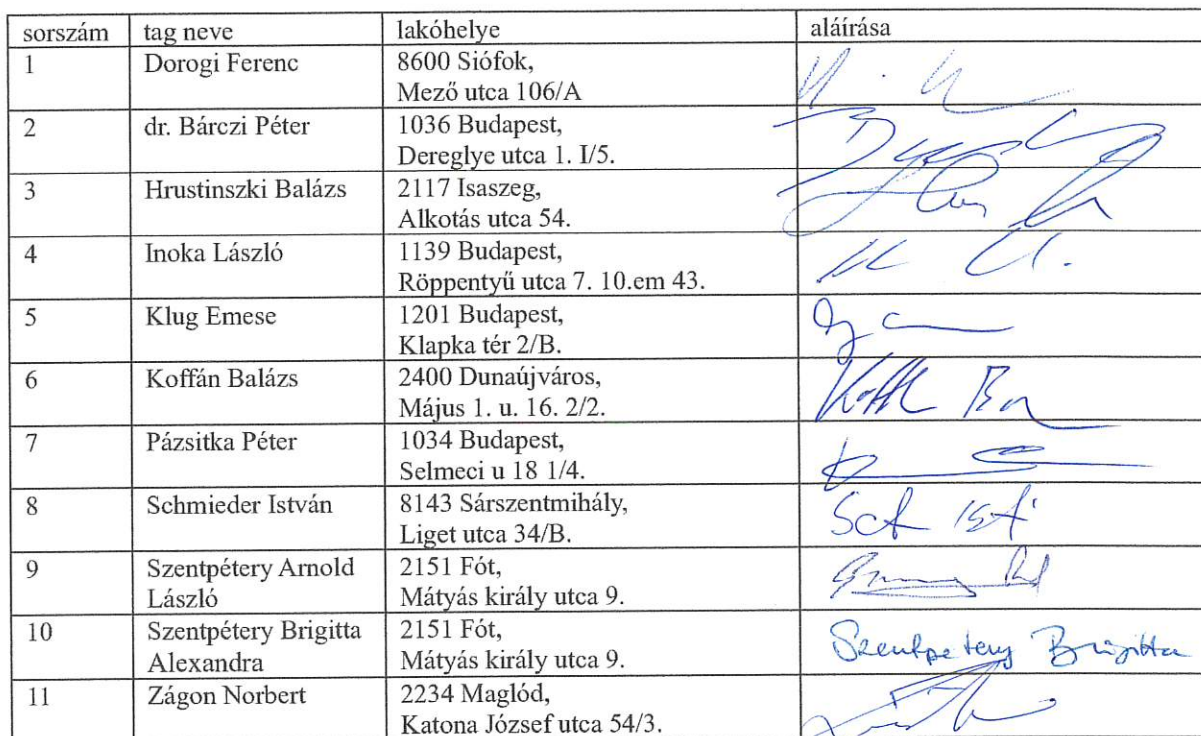 sorszám tag neve lakóhelye aláírása
1 Dorogi Ferenc 8600 Siófok,
Mező utca 106/A
2 dr. Bárczi Péter 1036 Budapest,
Dereglye utca 1. I/5.
3 Hrustinszki Balázs 2117 Isaszeg,
Alkotás utca 54.
4 Inoka László 1139 Budapest,
Röppentyű utca 7. 10.em 43.
5 Klug Emese 1201 Budapest,
Klapka tér 2/B.
6 Koffán Balázs 2400 Dunaújváros,
Május 1. u. 16. 2/2.
7 Pázsitka Péter 1034 Budapest,
Selmeci u 18 1/4.
8 Schmieder István 8143 Sárszentmihály,
Liget utca 34/B.
9 Szentpétery Arnold 2151 Fót,
László Mátyás király utca 9.
10 Szentpétery Brigitta 2151 Fót, Szentpétery Brigitta
Alexandra Mátyás király utca 9.
11 Zágon Norbert 2234 Maglód,
Katona József utca 54/3.